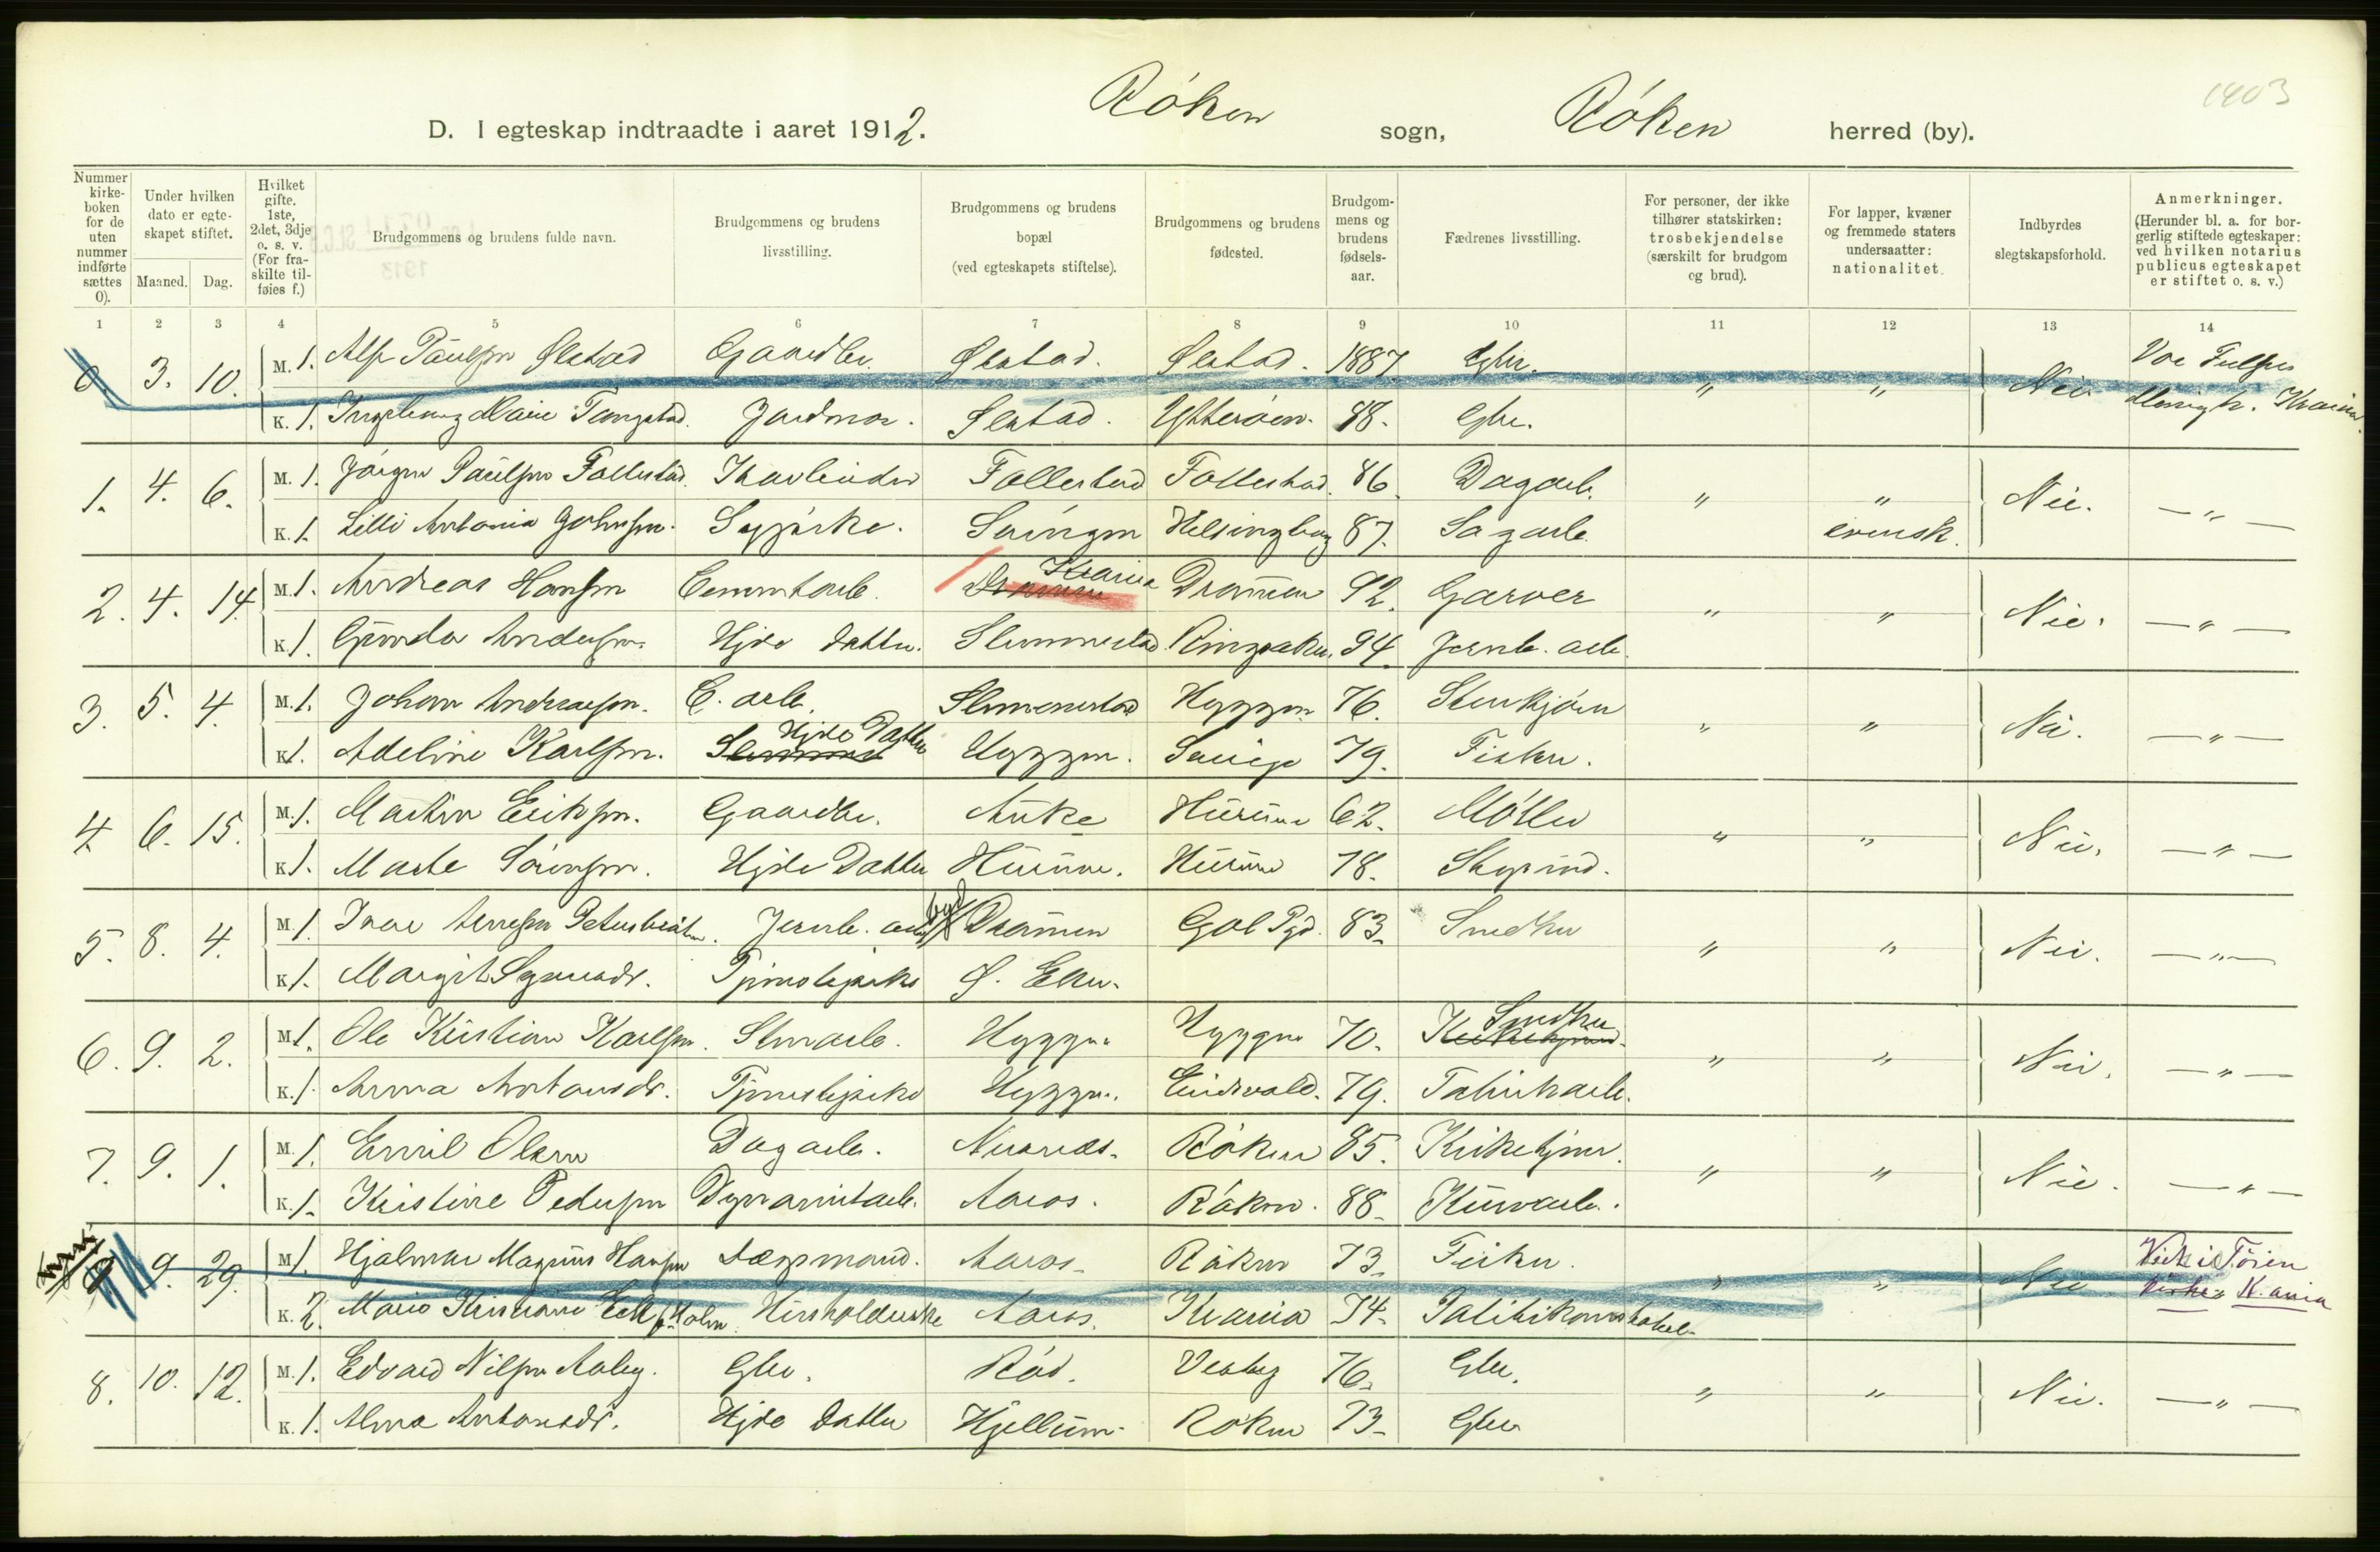 1403
D. I egteskap indtraadte i aaret 1912. Röken sogn, Röken herred (by).
Nummer kirke-boken for de uten nummer indførte sættes 0).
Under hvilken dato er egte-skapet stiftet.
Maaned. Dag.
Hvilket gifte. 1ste, 2det, 3dje o. s. v. (For fra-skilte til-føies f.)
Brudgommens og brudens fulde navn.
Brudgommens og brudens livsstilling.
Brudgommens og brudens bopæl (ved egteskapets stiftelse).
Brudgommens og brudens fødested.
Brudgom-mens og brudens fødsels-aar.
Fædrenes livsstilling.
For personer, der ikke tilhører statskirken: trosbekjendelse (særskilt for brudgom og brud).
For lapper, kvæner og fremmede staters undersaatter: nationalitet.
Indbyrdes slegtskapsforhold.
Anmerkninger. (Herunder bl. a. for bor-gerlig stiftede egteskaper: ved hvilken notarius publicus egteskapet er stiftet o. s. v.)
1 2 3 4 5 6 7 8 9 10 11 12 13 14
0. 3. 10. M. 1. Alf Paulsen Ølstad Gaardbr. Ølstad. Ølstad. 1887 Gbr. " " Nei.
K. 1. Ingeborg Marie Tungstad. Jordmor. Ølstad. Ytterøen. 88. Gbr. Menigh. Kr.ania.
1. 4. 6. M. 1. Jörgen Paulsen Follestad. Follestad Follestad. 86. Dagarb. " " Nei. — " —
K. 1. Lilli Antonia Johnsen. Sypike. Helsingborg 87. Sagarb. svensk.
2. 4. 14. M. 1. Andreas Hansen Cementarb. Drammen Kr.ania Drammen 92. Garver " " Nei. — " —
K. 1. Gunda Andersen. Hjde datter. Slemmestad Ringsaker. 94. Jernb. arb.
3. 5. 4. M. 1. Johan Andreassen. C. arb. Slemmestad Hyggen 76. Stenkjören " " Nei. — " —
K. 1. Adeline Karlsen. Hjde Datter Hyggen. Sverige 79. Fisker.
4. 6. 15. M. 1. Martin Eriksen. Gaardbr. Auke Hurum 62. Möller " " Nei. — " —
K. 1. Marte Sörensen. Hjde Datter Hurum. Hurum 78. Skysmd.
5. 8. 4. M. 1. Ivar Arnesen Jernb. arb. Drammen Gol Pgd. 83. Snedker " " Nei. — " —
K. 1. Margit Tjenestepike Ø. Eker.
6. 9. 2. M. 1. Ole Kristian Karlsen. Stenarb. Hyggen Hyggen 70. Snedker " " Nei. — " —
K. 1. Anna Antonsdr. Tjenestepike Hyggen. Eidsvold. 79. Fabrikarb.
7. 9. 1. M. 1. Emil Olsen Dagarb. Nærsnes. Röken 85. Kirketjener. " " Nei. — " —
K. 1. Kristine Pedersen Dynamitarb. Aaros. Röken. 88. Kurvarb.
9. 29. M. 1. Hjalmar Magnus Hansen Aaros. Röken 73. Fisker. " " Nei Viet i Töien
K. 2. Marie Kristiane Eek f. Holm. Husholderske Aaros. Kr.ania 74. Politikonstabel. Kirke Kr.ania
8. 10. 12. M. 1. Edvard Nilsen Aaby. Gbr. Röd. Vestby 76. Gbr. " " Nei. — " —
K. 1. Alma Antonsdr. Hjde datter Hjellum. Röken 73. Gbr.